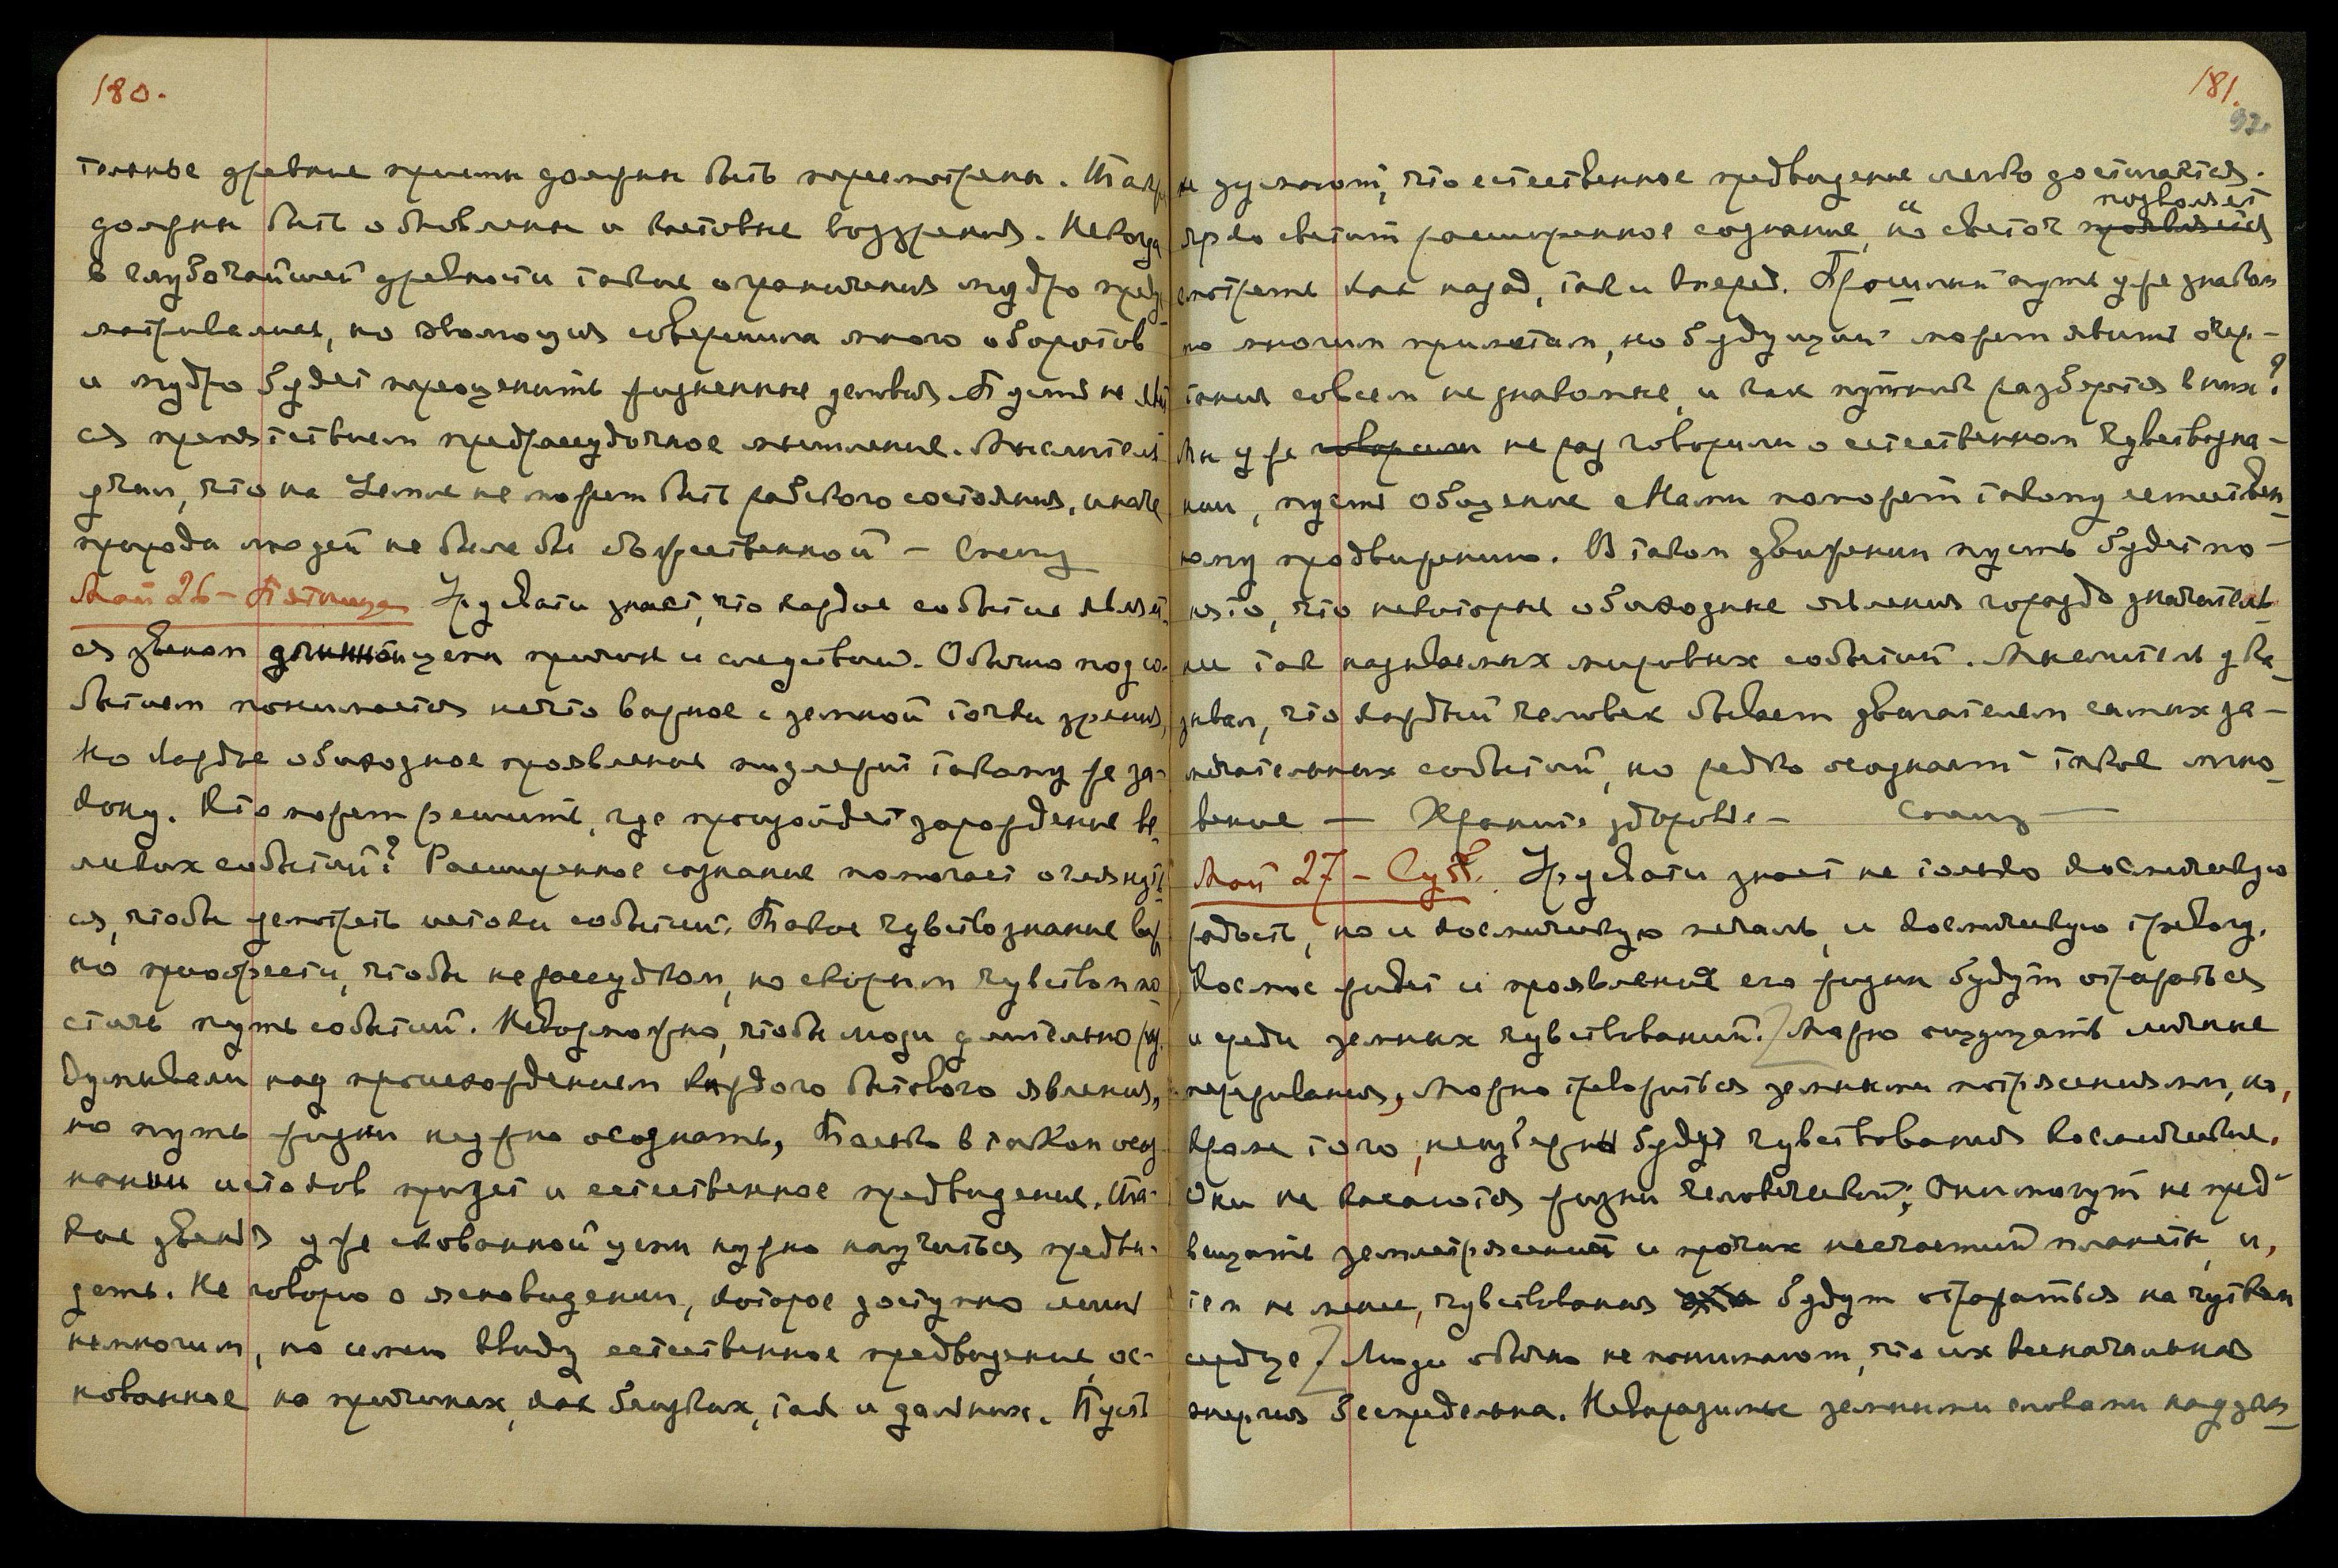 180.
тельные древние приемы должны быть пересмотрены. Также
должны быть обновлены и кастовые воззрения. Некогда
в глубочайшей древности такие ограничения мудро преду-
сматривались, но эволюция совершила много оборотов
и мудро будет переоценить жизненные условия. Пусть не явит-
ся препятствием предрассудочное мышление. Мыслитель
учил, что на Земле не может быть рабского состояния, иначе
природа людей не была бы божественной – Спешу
Май 26 – Пятница Урусвати знает, что каждое событие являет-
ся звеном длинной цепи причин и следствий. Обычно под со-
бытием понимается нечто важное с земной точки зрения,
Но каждое обиходное проявление подлежит такому же за-
кону. Кто может решить, где произойдет зарождение ве-
ликих событий? Расширенное сознание помогает оглянуть-
ся, чтобы усмотреть истоки событий. Такое чувствознание важ-
но приобрести, чтобы не рассудком, но скорым чувством по-
стичь путь событий. Невозможно, чтобы люди длительно раз-
думывали над происхождением каждого бытового явления,
но путь жизни нужно осознать, Только в таком осоз-
нании истоков придет и естественное предвидение. Та-
кие звенья уже скованной цепи нужно научиться предви-
деть. Не говорю о ясновидении, которое доступно лишь
немногим, но имею ввиду естественное предвидение, ос-
нованное на причинах, как близких, так и дальних. Пусть
181.
92.
не думают, что естественное предвидение легко достигается.
позволяет
Ярко светит расширенное сознание, и светоч проявляется
смотреть как назад, так и вперед. Прошлый путь уже знаком
по многим приметам, но будущий может явить очер-
тания совсем не знакомые, и как путник разберется в них?
Мы уже говорили не раз говорили о естественном чувствозна-
нии, пусть общение с Нами поможет такому естествен-
ному продвижению. В таком движении пусть будет по-
нято, что некоторые обиходные явления гораздо значитель-
нее так называемых мировых событий. Мыслитель ука-
зывал, что каждый человек бывает двигателем самых за-
мечательных событий, но редко осознает такое мгно-
вение – Храните здоровье – Спешу –
Май 27 – Субб. Урусвати знает не только космическую
радость, но и космическую печаль, и космическую тревогу.
Космос живет и проявления его жизни будут отражаться
и среди земных чувствований. Можно ощущать личные
переживания, можно тревожиться земными потрясениями, но,
кроме того, неизбежны будут чувствования космические.
Они не касаются жизни человеческой; Они могут не пред-
вещать землетрясений и прочих несчастий планеты, и,
тем не менее, чувствования будут отражаться на чутком
сердце. Люди обычно не понимают, что их всеначальная
энергия беспредельна. Невыразимые земными словами надзем-